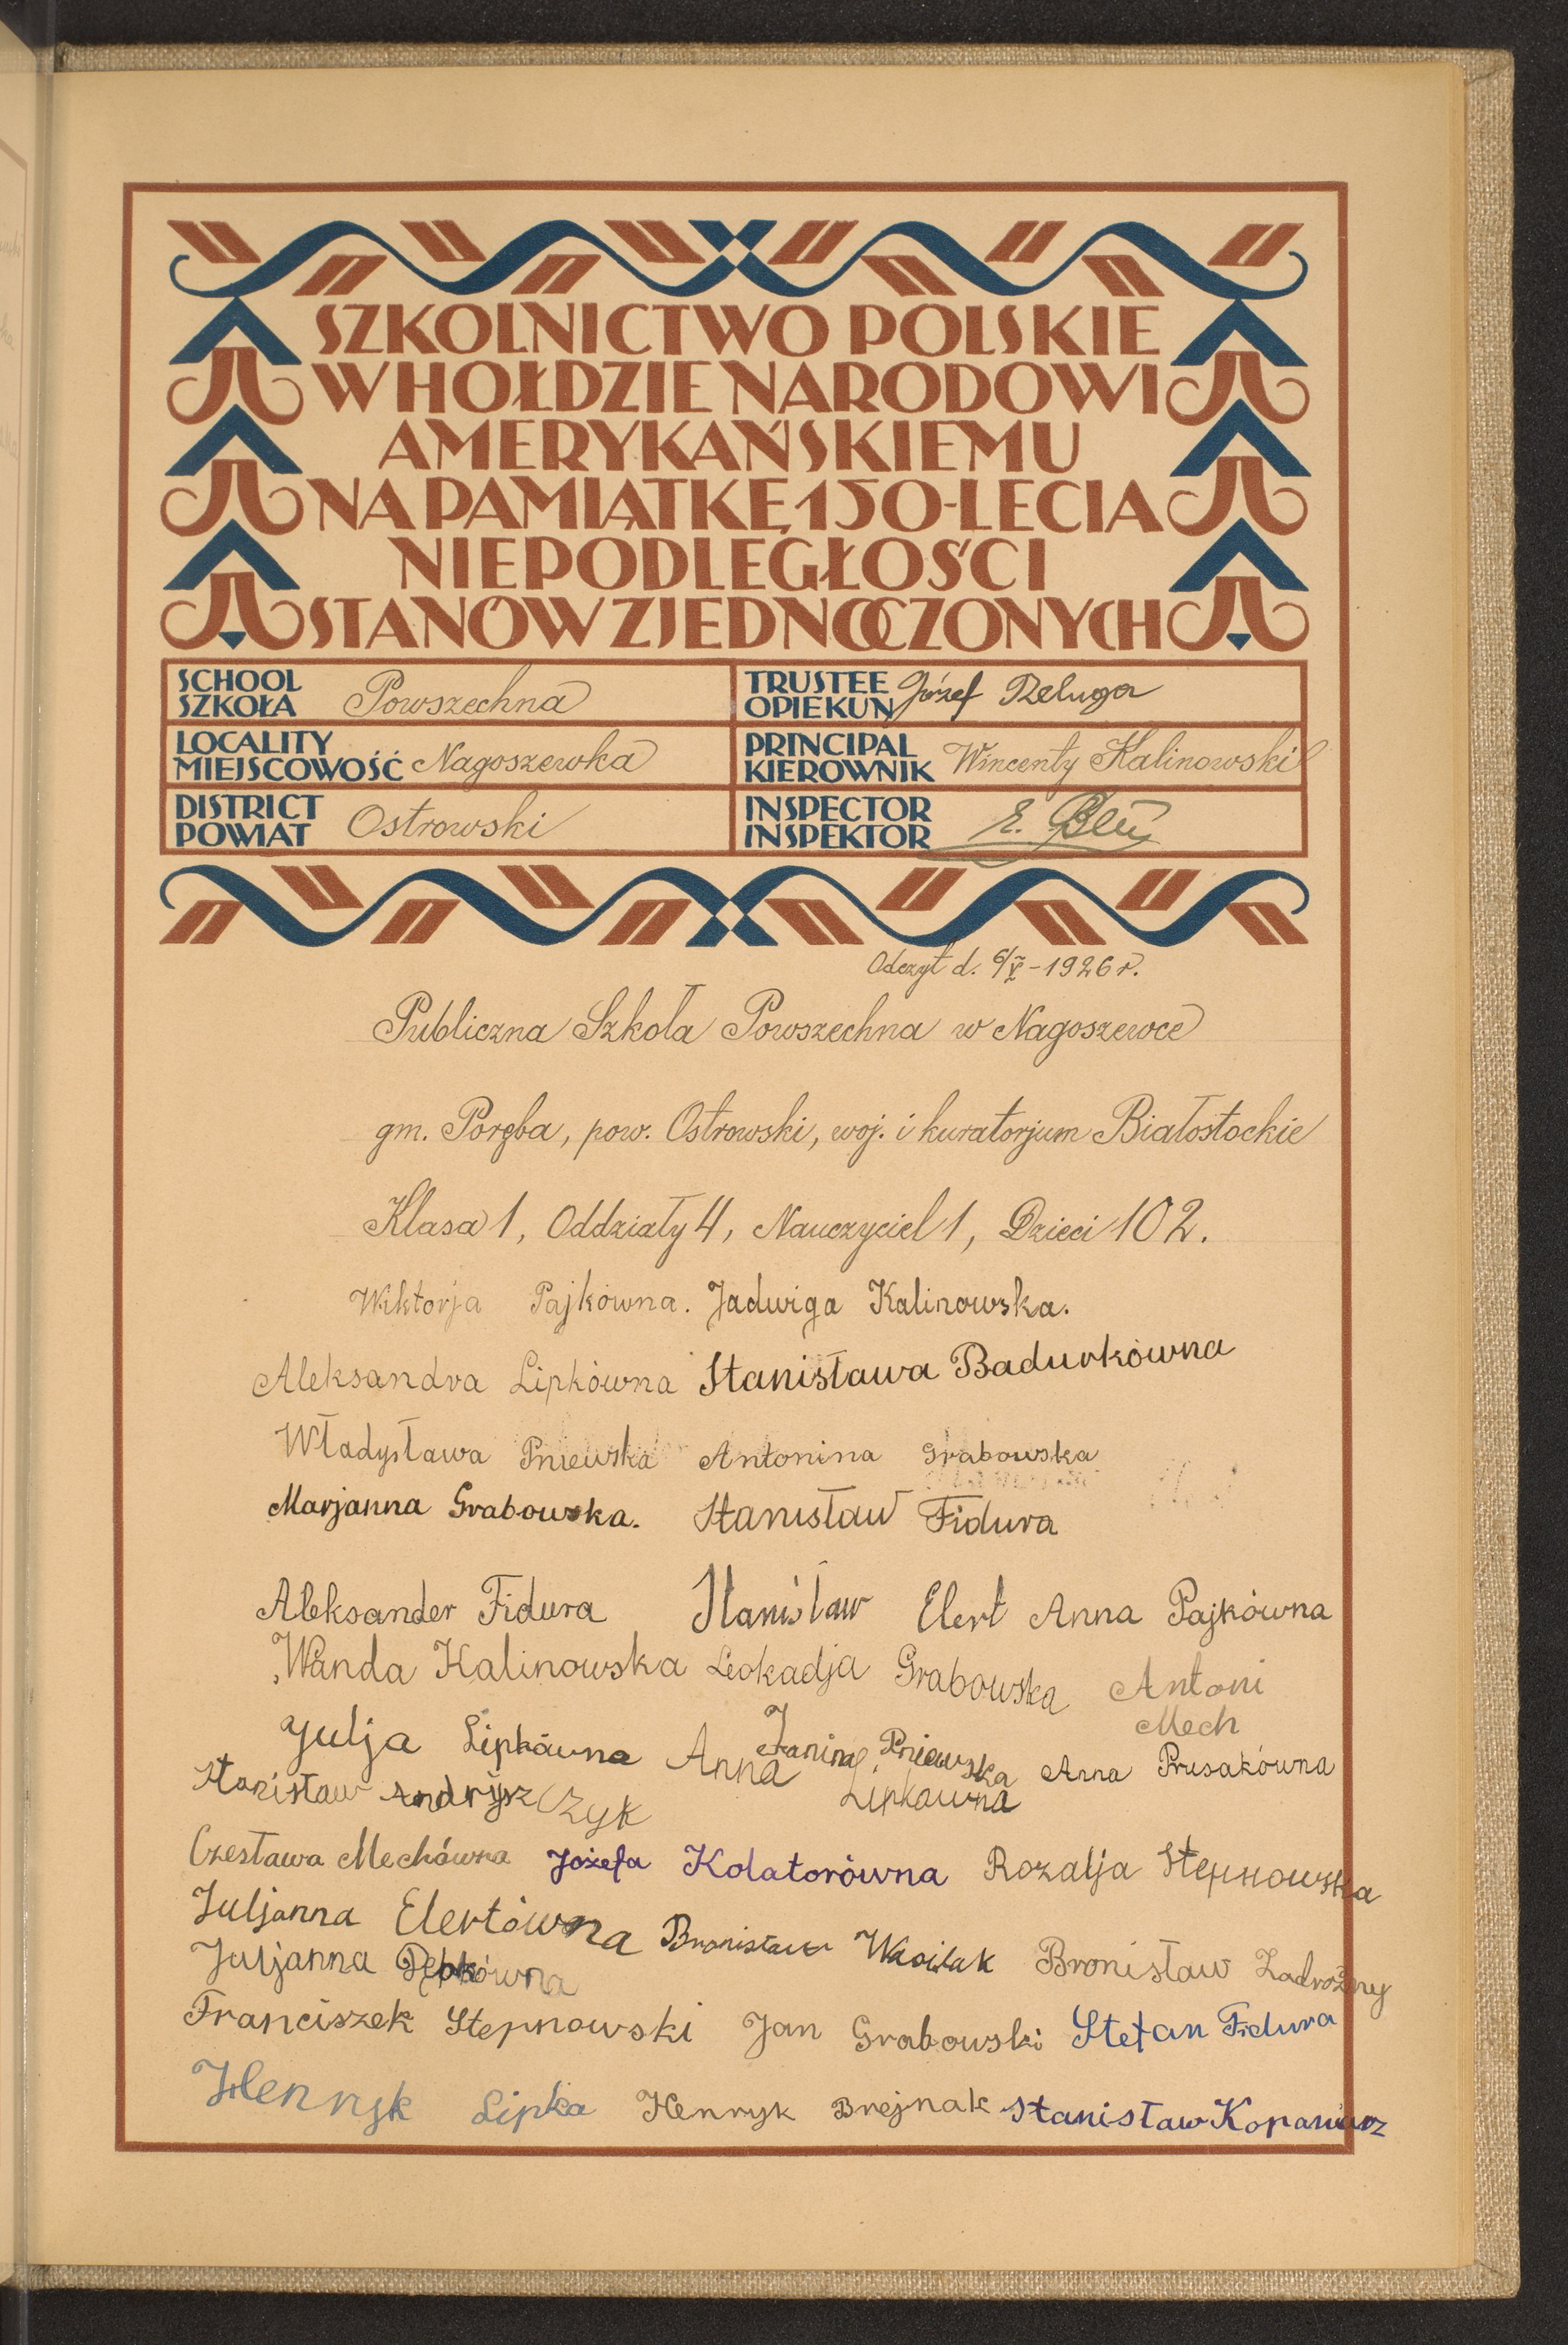 SZKOLNICTWO POLSKIE
W HOŁDZIE NARODOWI
AMERYKAŃSKIEMU
NA PAMIĄTKĘ 150-LECIA
NIEPODLEGŁOŚCI
STANÓW ZJEDNOCZONYCH
SCHOOL
SZKOŁA Powszechna
TRUSTEE
OPIEKUN Józef
LOCALITY
MIEJSCOWOŚĆ Nagoszewka
PRINCIPAL
KIEROWNIK Wincenty Kalinowski
DISTRICT
POWIAT Ostrowski
INSPECTOR
INSPEKTOR E.
Odczyt d. 6/V-1926 r.
Publiczna Szkoła Powszechna w Nagoszewce
gm. Poręba, pow. Ostrowski, woj. i kuratorjum Białostockie
Klasa 1, Oddziały 4, Nauczyciel 1, Dzieci 102.
Wiktorja Pajkówna. Jadwiga Kalinowska.
Aleksandra Lipkówna Stanisława Badurkówna
Władysława Pniewska Antonina Grabowska
Marjanna Grabowska. Stanisław Fidura
Aleksander Fidura Stanisław Elert Anna Pajkówna
Wanda Kalinowska Leokadja Grabowska Antoni
Mech
Julja Lipkówna Janina Pniewska
Anna Lipkówna Anna Prusakówna
Stanisław Andryszczyk
Czesława Mechówna Józefa Kolatorówna Rozalja Stepnowska
Juljanna Elertówna Bronisław Bronisław Zadrożny
Juljanna
Franciszek Stepnowski Jan Grabowski Stefan Fidura
Henryk Lipka Henryk Brejnak Stanisław Kopaniarz